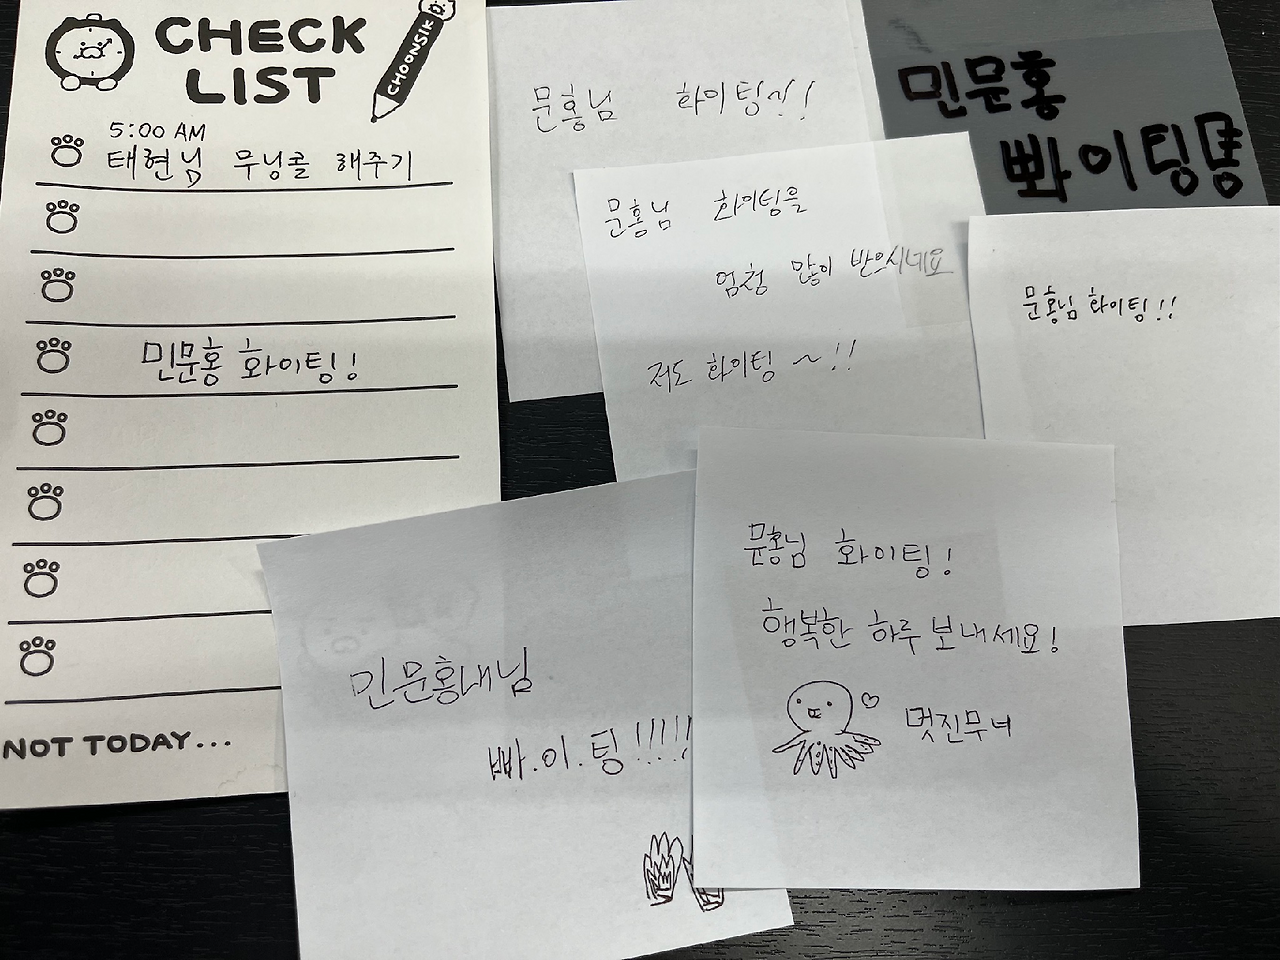 CHECK
LIST
CHOONSIK
5:00 AM
태현님 무닝콜 해주기
민문홍 화이팅!
NOT TODAY...
문홍님 화이팅!!
민문홍
빠이팅
문홍님 화이팅을
엄청 많이 받으시네요
저도 화이팅 ~!!
문홍님 화이팅!!
민문홍내님
빠.이.팅!!!!!
문홍님 화이팅!
행복한 하루 보내세요!
멋진무녀